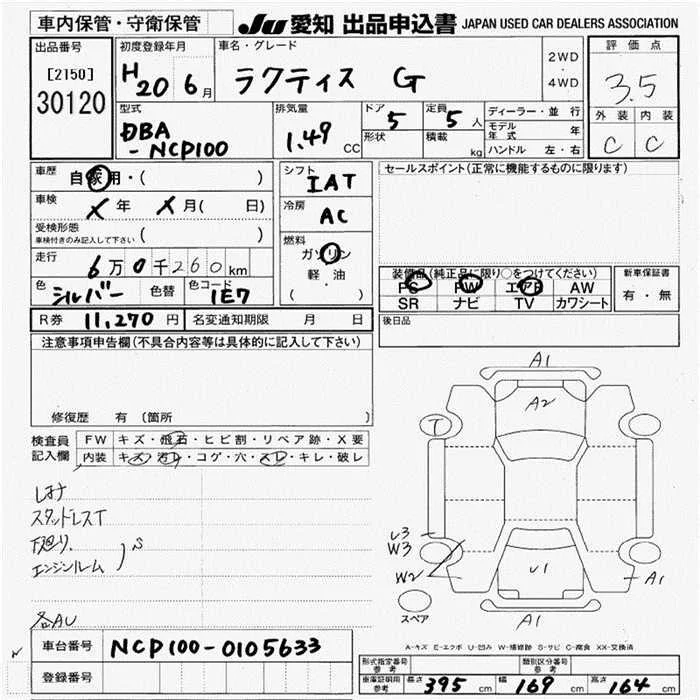 車内保管・守衛保管
JU 愛知 出品申込書 JAPAN USED CAR DEALERS ASSOCIATION
出品番号
[2150]
30120
初度登録年月
H20 6月
車名・グレード
ラクティス G
2WD
・
4WD
評価点
3.5
外装 内装
C C
型式
DBA
-NCP100
排気量
1.49 CC
ドア
5
形状
定員
5人
積載
kg
ディーラー・並行
モデル年式 年
ハンドル 左・右
車歴
自家用・( )
車検
X年 X月( 日)
受検形態
車検付きのみ記入して下さい ( )
走行
6万0千260km
色
シルバー 色替
色コード
1E7
シフト
IAT
冷房
AC
燃料
ガソリン
軽油
( )
セールスポイント(正常に機能するものに限ります)
装備品(純正品に限り○をつけてください)
PS PW エアB AW
SR ナビ TV カワシート
新車保証書
有・無
R券 11,270円 名変通知期限 月 日
後日品
注意事項申告欄(不具合内容等は具体的に記入して下さい)
修復歴 有 (箇所
検査員
記入欄
FW キズ・飛石・ヒビ割・リペア跡・X要
内装 キズ・汚レ・コゲ・穴・スレ・キレ・破レ
スタッドレスT
下廻り
エンジンルーム
S
各AU
A1
A2
T
U3
W3
W2
U1
A1
A1
スペア
A-キズ E-エクボ U-凹み W-補修跡 S-サビ C-腐食 XX-交換済
車台番号 NCP100-0105633
登録番号
型式指定番号
参考
類別区分番号
参考
車庫証明用
参考
長さ 395cm 幅 169cm 高さ 164cm